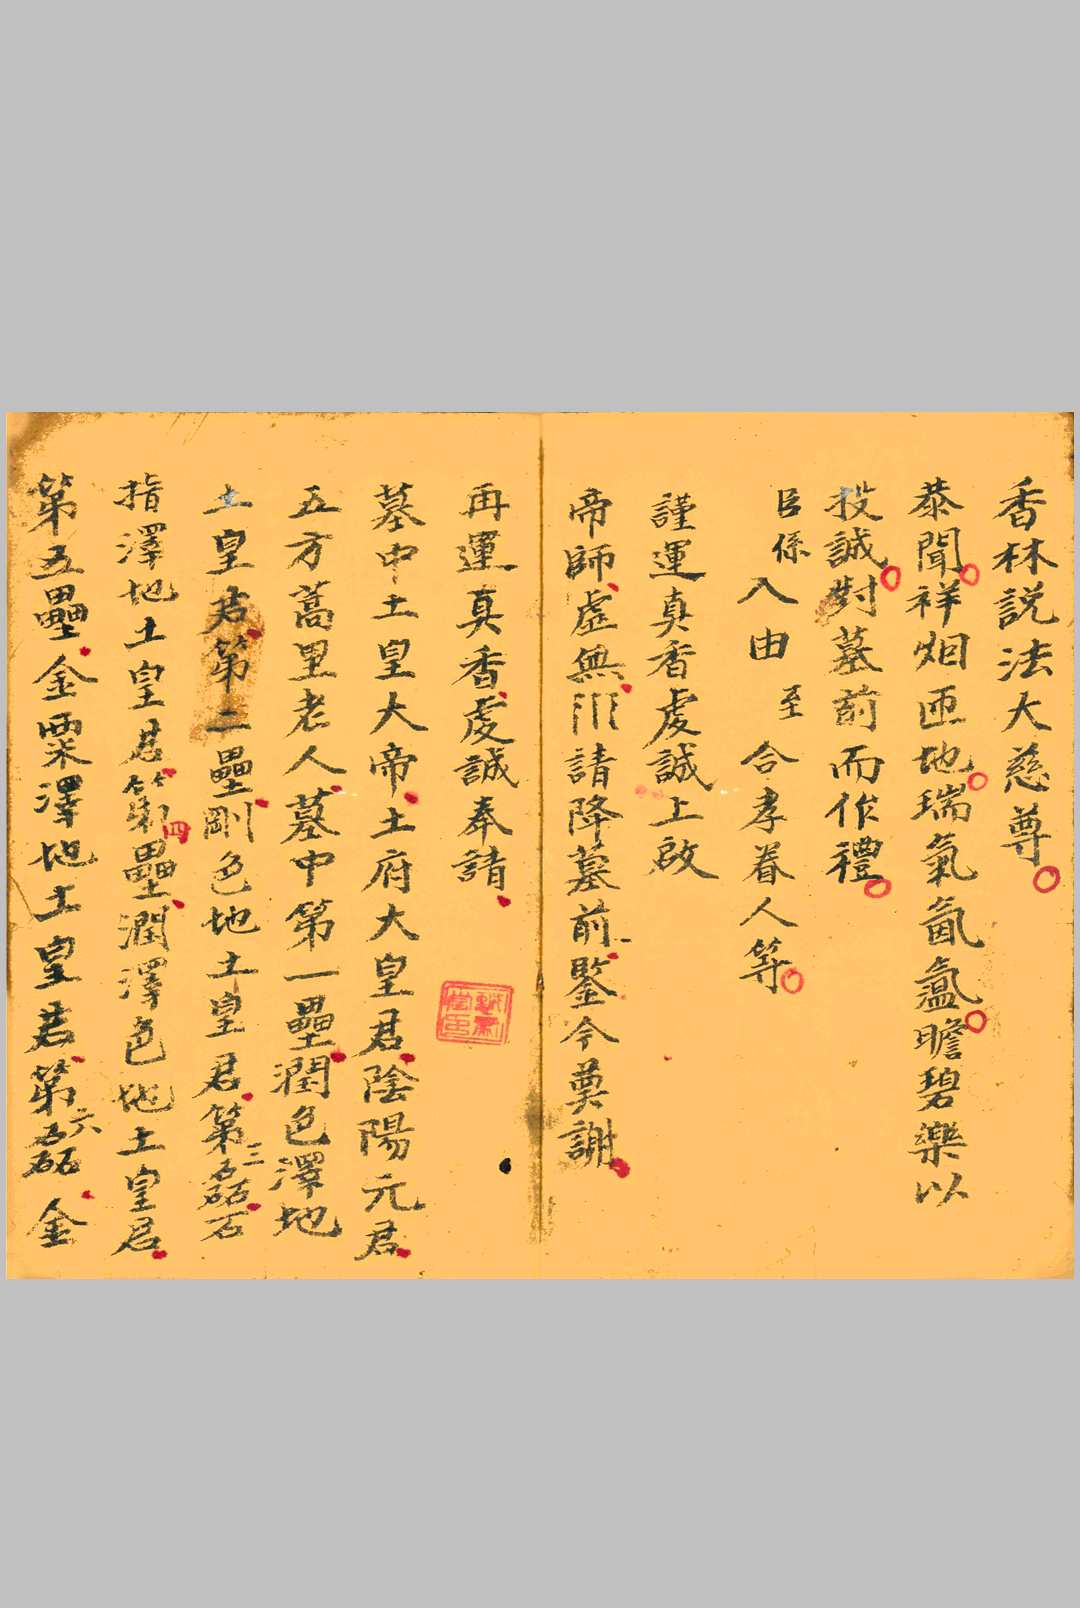 香林説法大慈尊
恭聞祥烟匝地瑞氣氤氳瞻碧樂以
投誠對墓前而作禮
臣係入由至合孝眷人等
謹運真香虔誠上啟
帝師虛無 請降墓前鑒今奠謝
再運真香虔誠奉請
墓中土皇大帝土府大皇君陰陽元君
五方蒿里老人墓中第一壘潤色澤地
土皇君第二壘剛色地土皇君第三磊石
指澤地土皇君第四壘潤澤色地土皇君
第五壘金粟澤地土皇君第六磊金